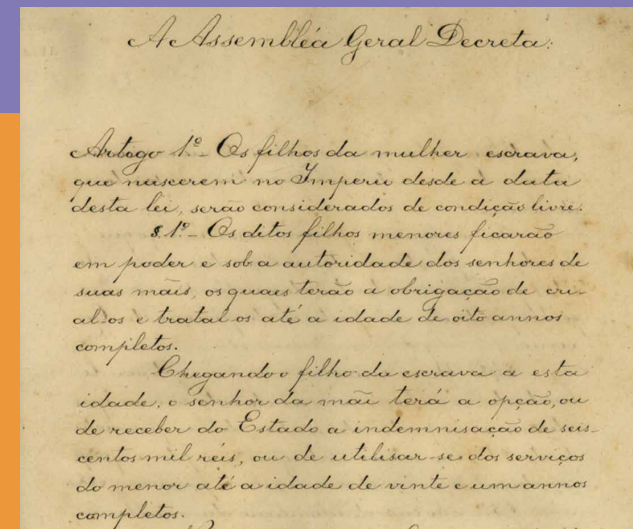 A Assembléa Geral Decreta:
Artogo 1º - Os filhos da mulher escrava,
que nascerem no Imperio desde a data
desta lei, serão considerados de condição livre.
§.1º - Os ditos filhos menores ficarão
em poder e sob a autoridade dos senhores de
suas mãis, os quaes terão a obrigação de cri-
al-os e tratal-os até a idade de oito annos
completos.
Chegando o filho da escrava a esta
idade, o senhor da mãi terá a opção, ou
de receber do Estado a indemnisação de seis-
centos mil réis, ou de utilisar-se dos serviços
do menor até a idade de vinte e um annos
completos.